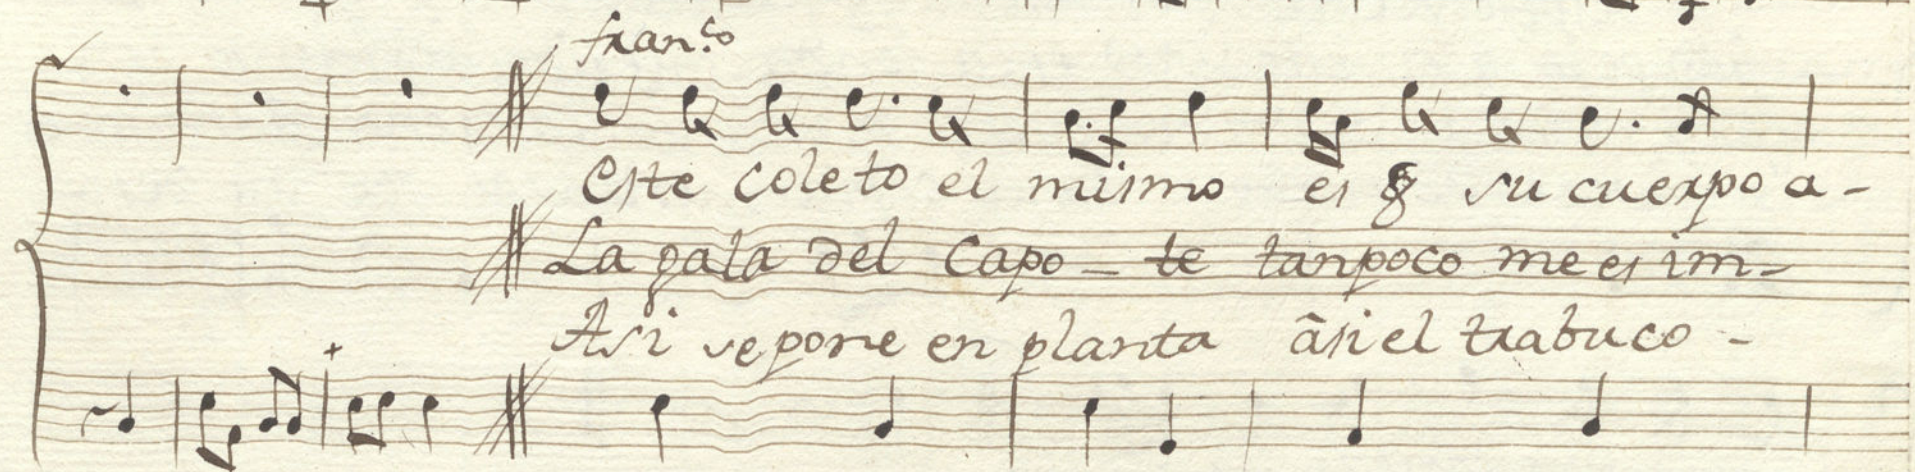 fran.co
Este coleto el mismo es d su cuerpo a-
La gala del Capo-te tanpoco me es im-
Asi se pone en planta ãsi el trabuco-